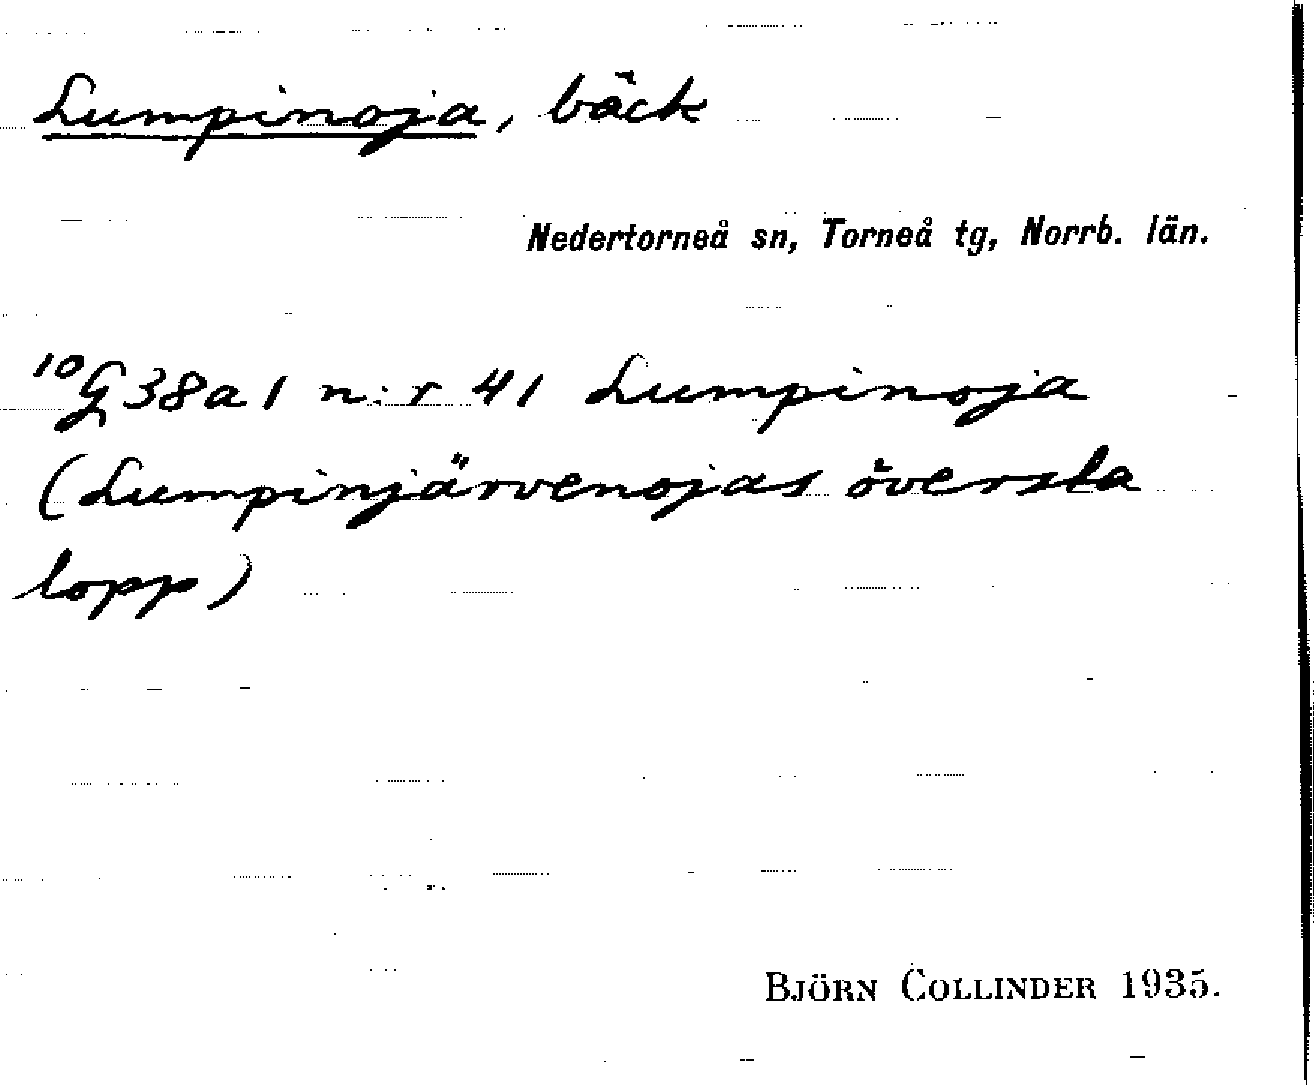 Lumpinoja, bäck
Nedertorneå sn, Torneå tg, Norrb. län.
¹⁰G38a1 n:r 41 Lumpinoja
(Lumpinjärvenojas översta
lopp)
BJÖRN COLLINDER 1935.